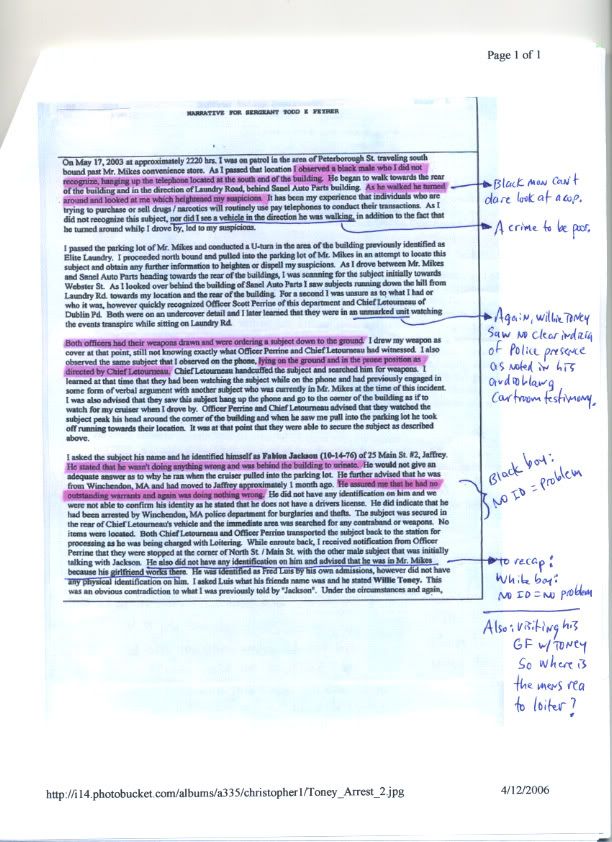 Page 1 of 1
NARRATIVE FOR SERGEANT TODD E FETHER
On May 17, 2003 at approximately 2220 hrs. I was on patrol in the area of Peterborough St. traveling south
bound past Mr. Mikes convenience store. As I passed that location I observed a black male who I did not
recognize, hanging up the telephone located at the south end of the building. He began to walk towards the rear
of the building and in the direction of Laundry Road, behind Sanel Auto Parts building. As he walked he turned
around and looked at me which heightened my suspicions. It has been my experience that individuals who are
trying to purchase or sell drugs / narcotics will routinely use pay telephones to conduct their transactions. As I
did not recognize this subject, nor did I see a vehicle in the direction he was walking, in addition to the fact that
he turned around while I drove by, led to my suspicions.
I passed the parking lot of Mr. Mikes and conducted a U-turn in the area of the building previously identified as
Elite Laundry. I proceeded north bound and pulled into the parking lot of Mr. Mikes in an attempt to locate this
subject and obtain any further information to heighten or dispell my suspicions. As I drove between Mr. Mikes
and Sanel Auto Parts heading towards the rear of the buildings, I was scanning for the subject initially towards
Webster St. As I looked over behind the building of Sanel Auto Parts I saw subjects running down the hill from
Laundry Rd. towards my location and the rear of the building. For a second I was unsure as to what I had or
who it was, however quickly recognized Officer Scott Perrine of this department and Chief Letourneau of
Dublin Pd. Both were on an undercover detail and I later learned that they were in an unmarked unit watching
the events transpire while sitting on Laundry Rd.
Both officers had their weapons drawn and were ordering a subject down to the ground. I drew my weapon as
cover at that point, still not knowing exactly what Officer Perrine and Chief Letourneau had witnessed. I also
observed the same subject that I observed on the phone, lying on the ground and in the prone position as
directed by Chief Letourneau. Chief Letourneau handcuffed the subject and searched him for weapons. I
learned at that time that they had been watching the subject while on the phone and had previously engaged in
some form of verbal argument with another subject who was currently in Mr. Mikes at the time of this incident.
I was also advised that they saw this subject hang up the phone and go to the corner of the building as if to
watch for my cruiser when I drove by. Officer Perrine and Chief Letourneau advised that they watched the
subject peak his head around the corner of the building and when he saw me pull into the parking lot he then
took off running towards their location. It was at that point that they were able to secure the subject as described
above.
I asked the subject his name and he identified himself as Fabion Jackson (10-14-76) of 25 Main St. #2, Jaffrey.
He stated that he wasn't doing anything wrong and was behind the building to urinate. He would not give an
adequate answer as to why he ran when the cruiser pulled into the parking lot. He further advised that he was
from Winchendon, MA and had moved to Jaffrey approximately 1 month ago. He assured me that he had no
outstanding warrants and again was doing nothing wrong. He did not have any identification on him and we
were not able to confirm his identity as he stated that he does not have a drivers license. He did indicate that he
had been arrested by Winchendon, MA police department for burglaries and thefts. The subject was secured in
the rear of Chief Letourneau's vehicle and the immediate area was searched for any contraband or weapons. No
items were located. Both Chief Letourneau and Officer Perrine transported the subject back to the station for
processing as he was being charged with Loitering. While enroute back, I received notification from Officer
Perrine that they were stopped at the corner of North St. / Main St. with the other male subject that was initially
talking with Jackson. He also did not have any identification on him and advised that he was in Mr. Mikes
because his girlfriend works there. He was identified as Fred Luis by his own admissions, however did not have
any physical identification on him. I asked Luis what his friends name was and he stated Willie Toney. This
was an obvious contradiction to what I was previously told by "Jackson". Under the circumstances and again,
Black man can't
dare look at a cop.
A crime to be poor.
Again, Willie Toney
saw no clear indicia
of Police presence
as noted in his
courtroom testimony.
Black boy:
NO ID = Problem
to recap:
White boy:
NO ID = NO problem
Also: visiting his
GF w/ TONEY
So where is
the mens rea
to loiter?
http://i14.photobucket.com/albums/a335/christopher1/Toney_Arrest_2.jpg
4/12/2006